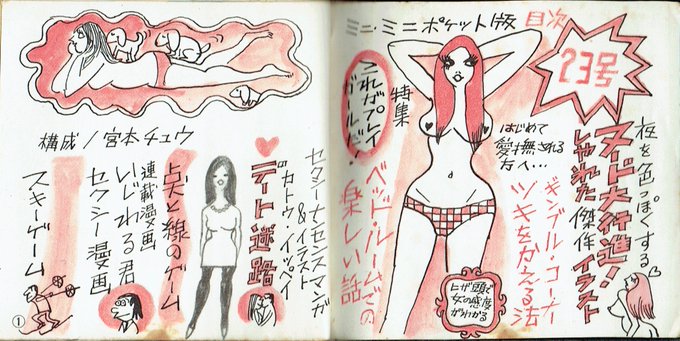 ミニ・ミニポケット版
目次
23号
夜を色っぽくする
ヌード大行進!
しゃれた傑作イラスト
ギンブル・コーナー
ツキをかえる法
はじめて
愛撫される
方へ…
特集
これがプレイ
ガールだ!
ベッド・ルームでの
楽しい話
ヒザ頭で
女の感度
がわかる
セクシーナンセンスマンガ
&イラスト
デカトウ・イッペイ
デート迷路
点と線のゲーム
連載漫画
いじわる君
セクシー漫画
スキーゲーム
構成/宮本チュウ
1